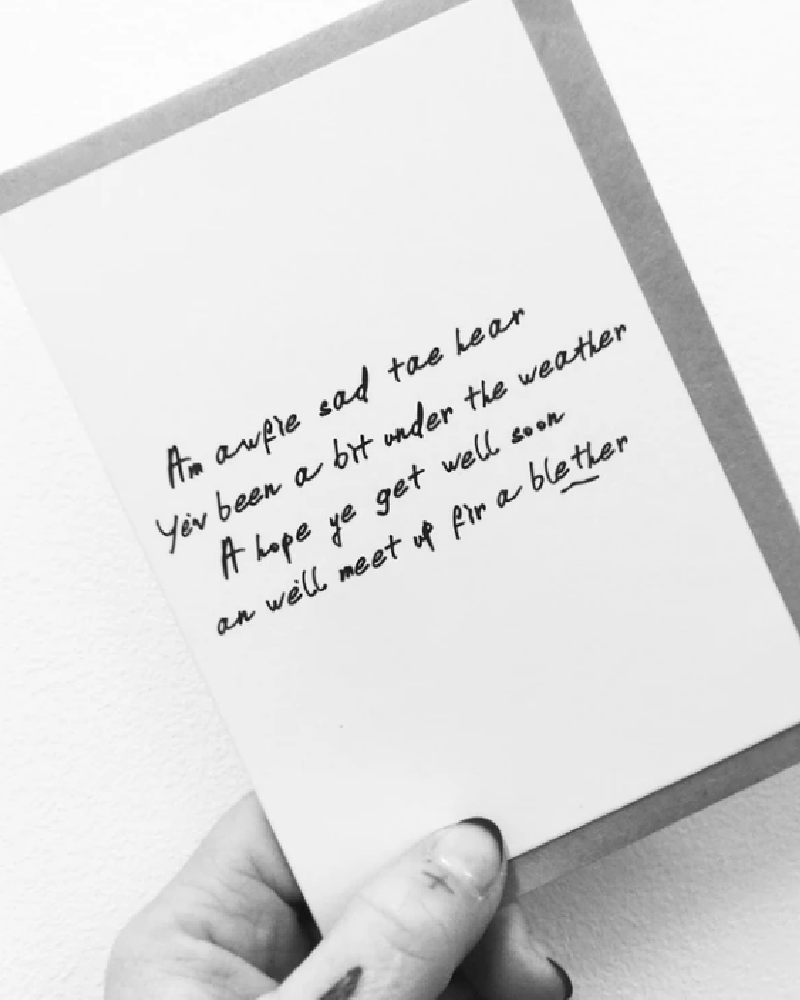 Am awfie sad tae hear
Yev been a bit under the weather
A hope ye get well soon
an we'll meet up fir a blether